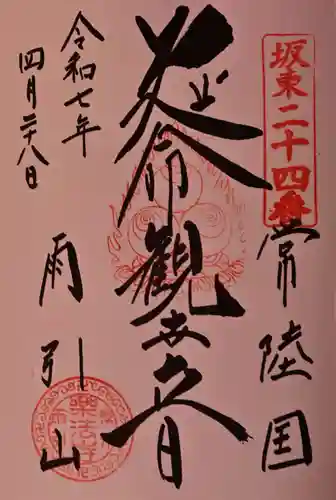 坂東二十四番
常陸国
延命觀世音
令和七年
四月二十八日
雨引山
樂法寺